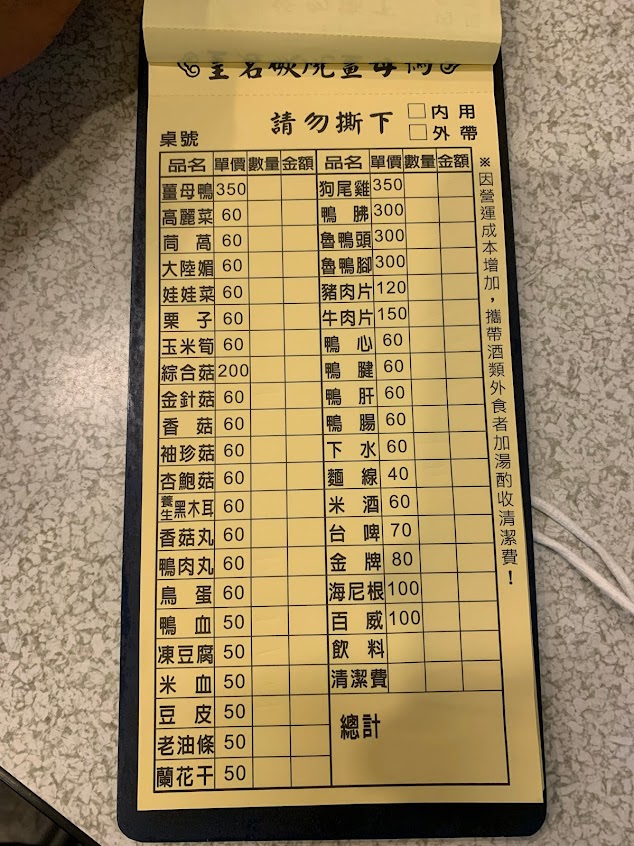 薑母鴨
請勿撕下
□內用
□外帶
桌號
品名 單價 數量 金額
薑母鴨 350
高麗菜 60
茼蒿 60
大陸媚 60
娃娃菜 60
栗子 60
玉米筍 60
綜合菇 200
金針菇 60
香菇 60
袖珍菇 60
杏鮑菇 60
養生黑木耳 60
香菇丸 60
鴨肉丸 60
鳥蛋 60
鴨血 50
凍豆腐 50
米血 50
豆皮 50
老油條 50
蘭花干 50
品名 單價 數量 金額
狗尾雞 350
鴨胇 300
魯鴨頭 300
魯鴨腳 300
豬肉片 120
牛肉片 150
鴨心 60
鴨腱 60
鴨肝 60
鴨腸 60
下水 60
麵線 40
米酒 60
台啤 70
金牌 80
海尼根 100
百威 100
飲料
清潔費
總計
※因營運成本增加,攜帶酒類外食者加湯酌收清潔費!